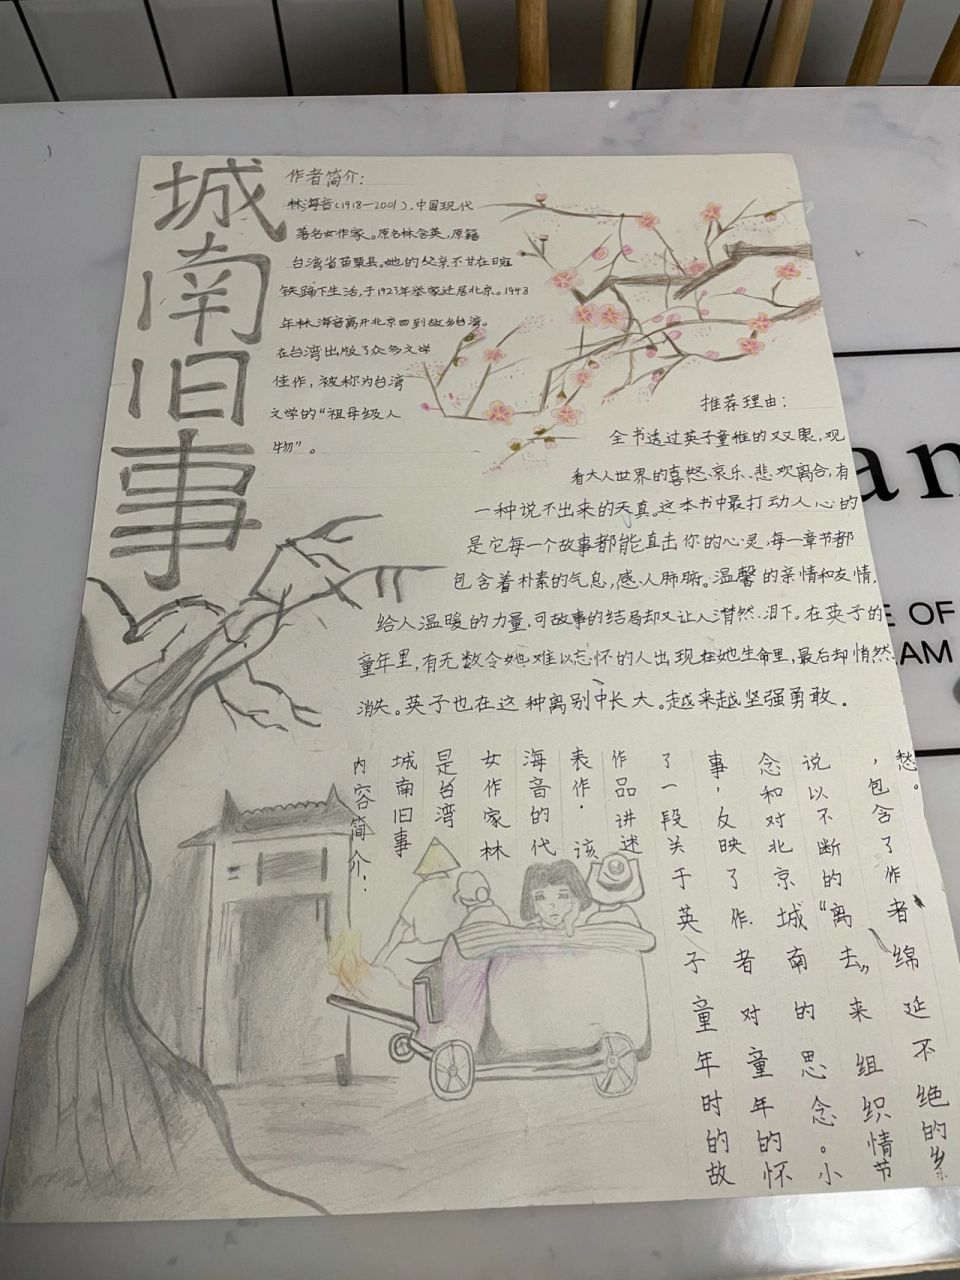 城南旧事
作者简介：
林海音（1918—2001），中国现代
著名女作家。原名林含英，原籍
台湾省苗栗县。她的父亲不甘在日寇
铁蹄下生活，于1923年举家迁居北京。1948
年林海音离开北京回到故乡台湾。
在台湾出版了众多文学
佳作，被称为台湾
文学的“祖母级人
物”。
推荐理由：
全书透过英子童稚的双眼，观
看大人世界的喜怒、哀乐、悲欢离合，有
一种说不出来的天真。这本书中最打动人心的
是它每一个故事都能直击你的心灵，每一章节都
包含着朴素的气息，感人肺腑。温馨的亲情和友情，
给人温暖的力量，可故事的结局却又让人潸然泪下。在英子的
童年里，有无数令她难以忘怀的人出现在她生命里，最后却悄然
消失。英子也在这种离别中长大。越来越坚强勇敢。
内容简介：
城南旧事
是台湾
女作家林
海音的代
表作．该
作品讲述
了一段关于英子童年时的故
事，反映了作者对童年的怀
念和对北京城南的思念。小
说以不断的“离去”来组织情节
，包含了作者绵延不绝的乡
愁。
an
E OF
AM